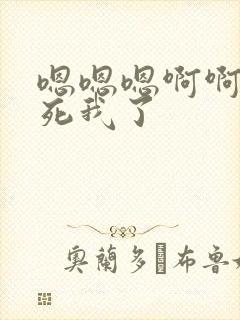 嗯嗯嗯啊啊
死我了
奥蘭多·布鲁